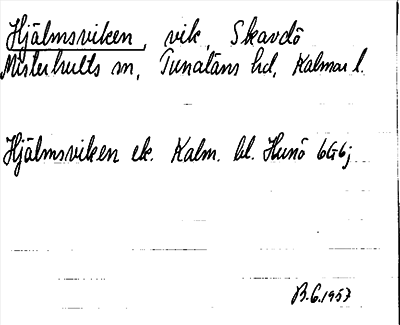 Hjälmsviken, vik, Skavdö
Misterhults sn, Tunaläns hd, Kalmar l.
Hjälmsviken ek. Kalm. bl. Hunö 6G6j
B.G.1957